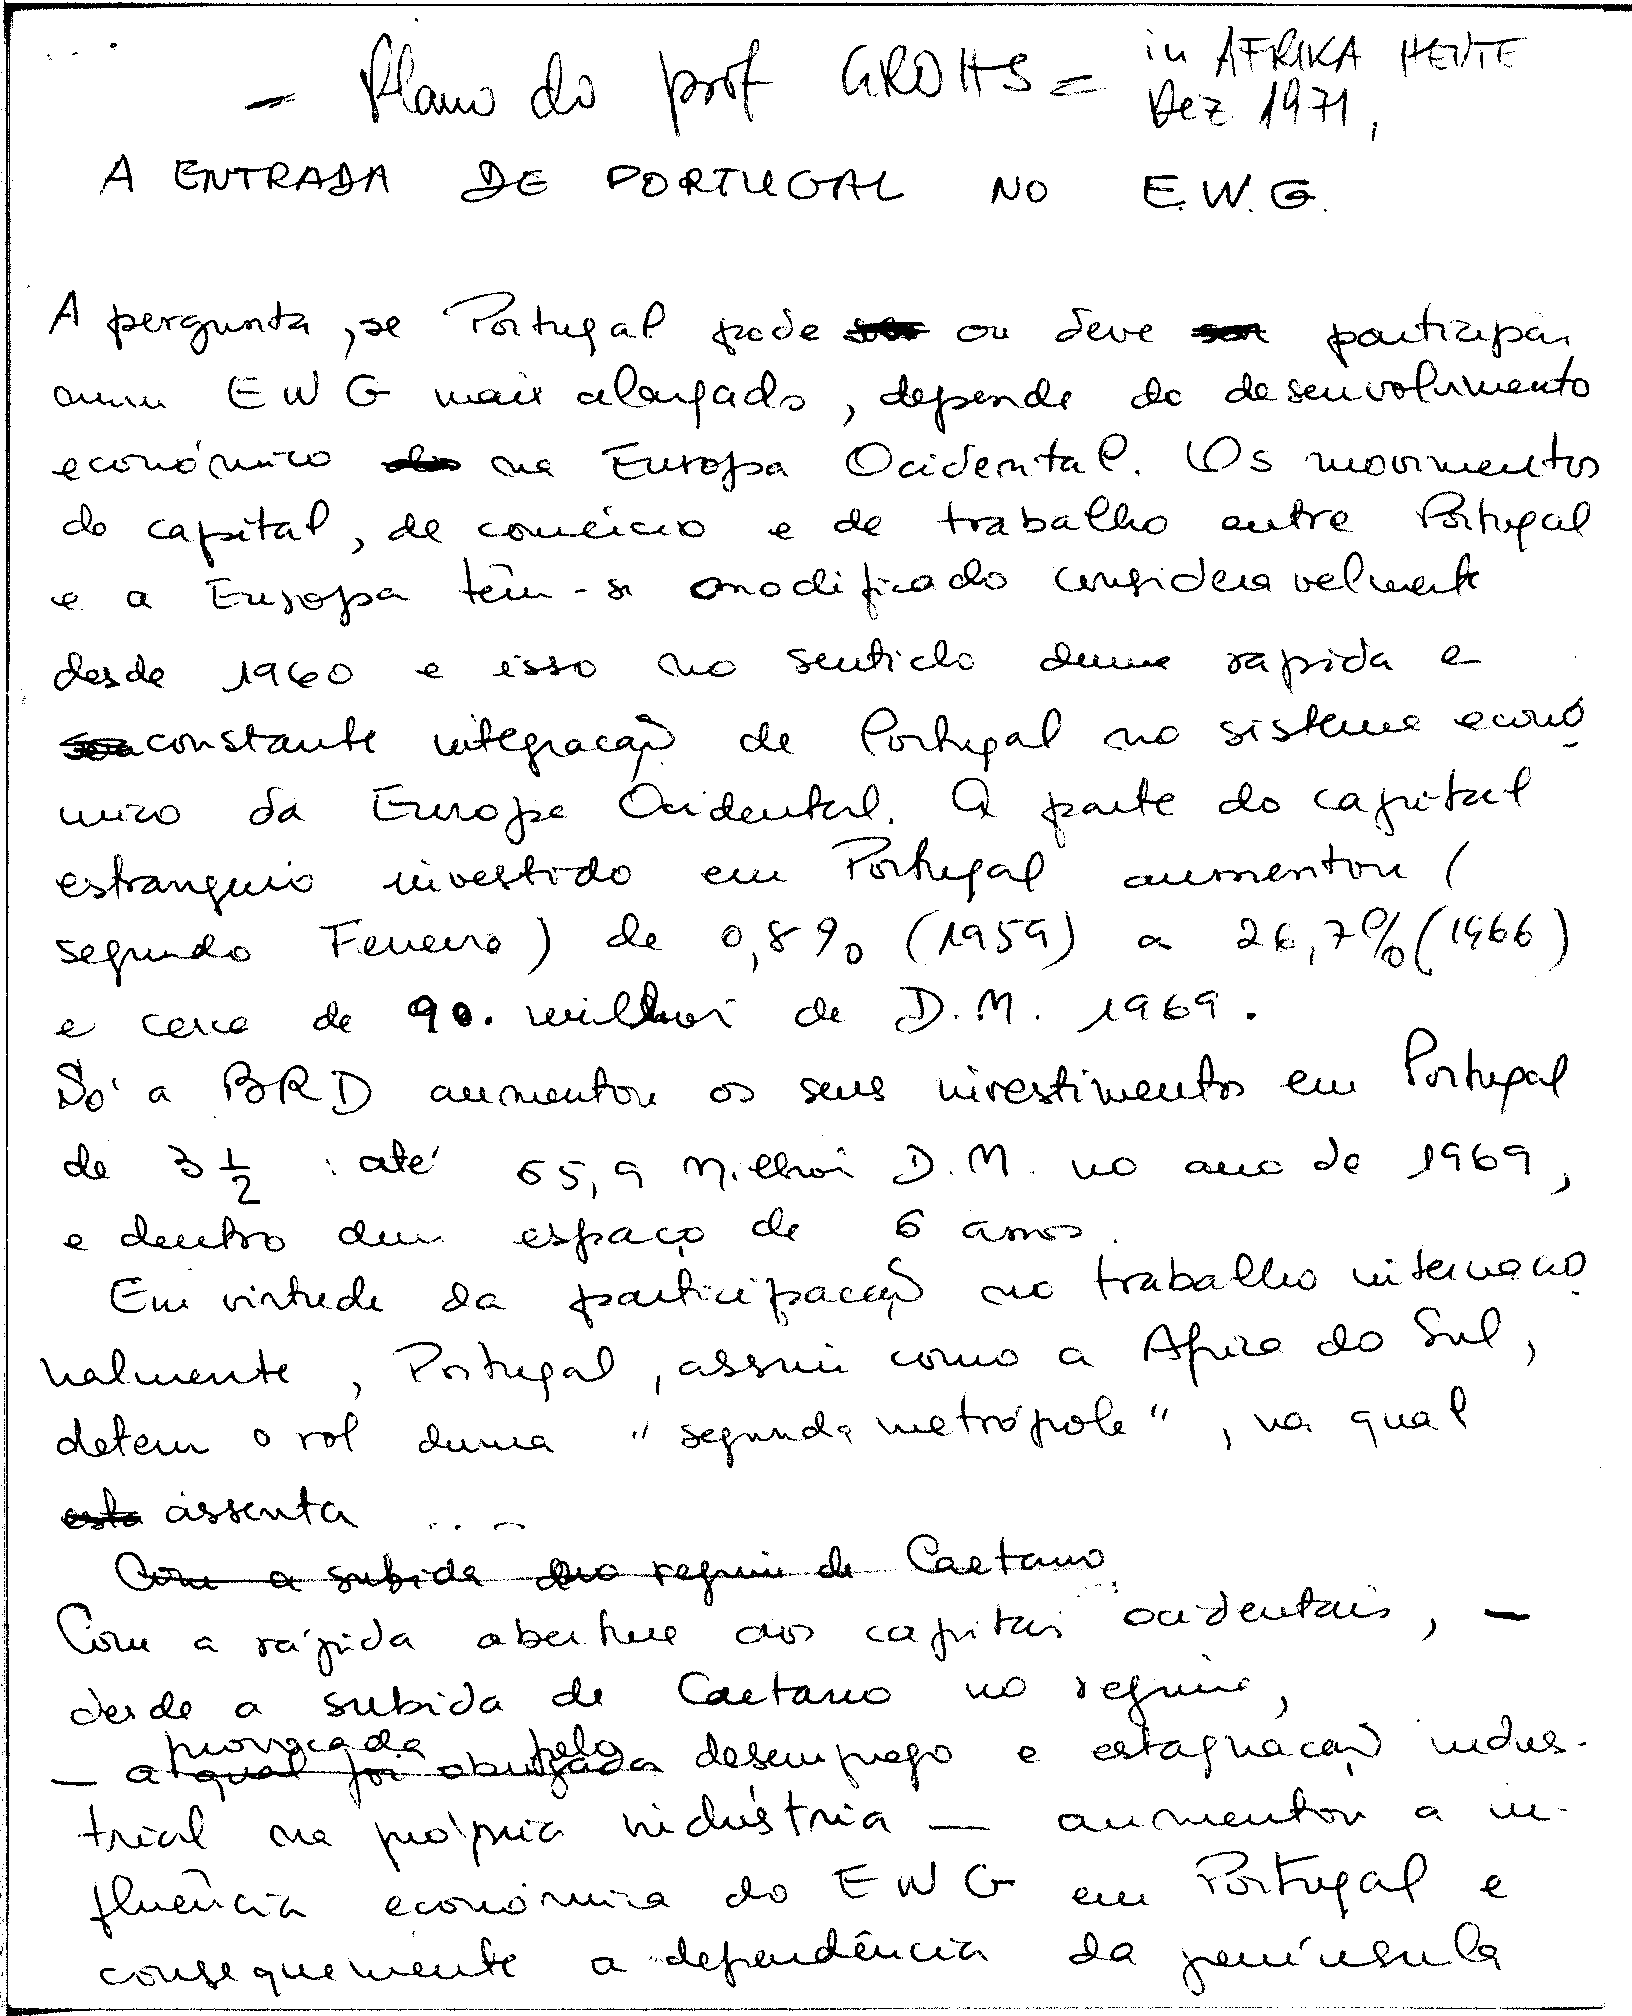 – Plano do prof GROHS = in AFRIKA HEUTE
Dez 1971,
A ENTRADA DE PORTUGAL NO E.W.G.
A pergunta, se Portugal pode ou deve participar
num EWG mais alargado, depende do desenvolvimento
económico na Europa Ocidental. Os movimentos
do capital, de comércio e de trabalho entre Portugal
e a Europa têm-se modificado consideravelmente
desde 1960 e isso no sentido duma rapida e
constante integração de Portugal no sistema econó
mico da Europa Ocidental. A parte do capital
estrangeiro investido em Portugal aumentou (
segundo Ferreira) de 0,8% (1959) a 26,7% (1966)
e cerca de 90. milhões de D.M. 1969.
Só a BRD aumentou os seus investimentos em Portugal
de 3 1/2 até 65,9 Milhões D.M. no ano de 1969,
e dentro dum espaço de 6 anos.
Em virtude da participação no trabalho internacio
nalmente, Portugal, assim como a Africa do Sul,
detem o rol duma "segunda metrópole", na qual
esta assenta ...
Com a subida do regime de Caetano
Com a rápida abertura aos capitais ocidentais, –
desde a subida de Caetano no regime,
provocada pelo
– a qual foi obrigada desemprego e estagnação indus-
trial na própria indústria — aumentou a in-
fluência económica do EWG em Portugal e
consequemente a dependência da península